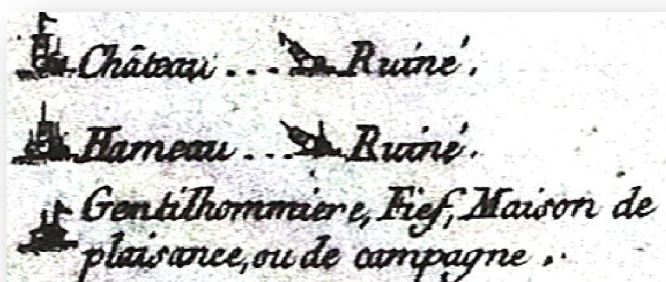 Château ... Ruiné.
Hameau ... Ruiné.
Gentilhommiere, Fief, Maison de
plaisance, ou de campagne .